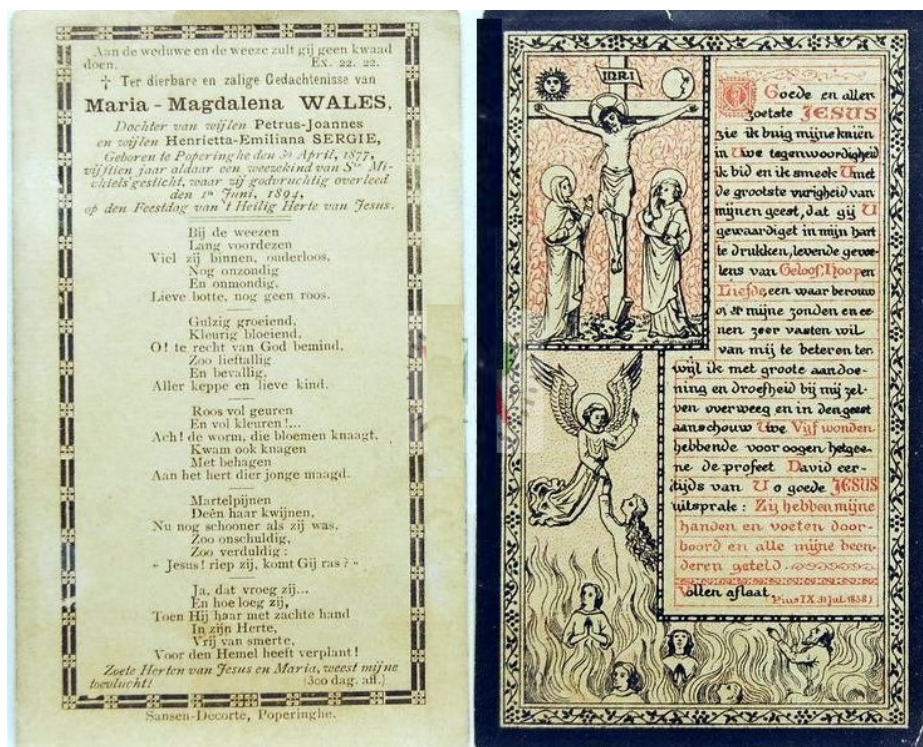 Aan de weduwe en de weeze zult gij geen kwaad
doen. Ex. 22. 22.
† Ter dierbare en zalige Gedachtenisse van
Maria - Magdalena WALES,
Dochter van wijlen Petrus-Joannes
en wijlen Henrietta-Emiliana SERGIE,
Geboren te Poperinghe den April, 1877,
vijftien jaar aldaar een weezekind van Ste Mi-
chielsgesticht, waar zij godvruchtig overleed
den 1n Juni, 1894,
op den Feestdag van 't Heilig Herte van Jesus.
Bij de weezen
Lang voordezen
Viel zij binnen, ouderloos,
Nog onzondig
En onmondig,
Lieve botte, nog geen roos.
Gulzig groeiend,
Kleurig bloeiend,
O! te recht van God bemind,
Zoo lieftallig
En bevallig,
Aller keppe en lieve kind.
Roos vol geuren
En vol kleuren!...
Ach! de worm, die bloemen knaagt,
Kwam ook knagen
Met behagen
Aan het hert dier jonge maagd.
Martelpijnen
Deên haar kwijnen,
Nu nog schooner als zij was,
Zoo onschuldig,
Zoo verduldig:
« Jesus! riep zij, komt Gij ras? »
Ja, dat vroeg zij...
En hoe loeg zij,
Toen Hij haar met zachte hand
In zijn Herte,
Vrij van smerte,
Voor den Hemel heeft verplant!
Zoete Herten van Jesus en Maria, weest mijne
toevlucht! (300 dag. afl.)
Sansen-Decorte, Poperinghe.
INRI
O Goede en aller
zoetste JESUS
zie ik buig mijne knieën
in Uwe tegenwoordigheid
ik bid en ik smeek U met
de grootste vurigheid van
mijnen geest, dat gij U
gewaardiget in mijn hart
te drukken, levende gevoe
lens van Geloof, Hoop en
Liefde, een waar berouw
over mijne zonden en ee
nen zeer vasten wil
van mij te beteren ter
wijl ik met groote aandoe-
ning en droefheid bij mij zel-
ven overweeg en in den geest
aanschouw Uwe Vijf wonden
hebbende voor oogen hetgee-
ne de profeet David eer-
tijds van U o goede JESUS
uitsprak: Zij hebben mijne
handen en voeten door-
boord en alle mijne been-
deren geteld.
Vollen aflaat. Pius IX 31 Jul. 1858)